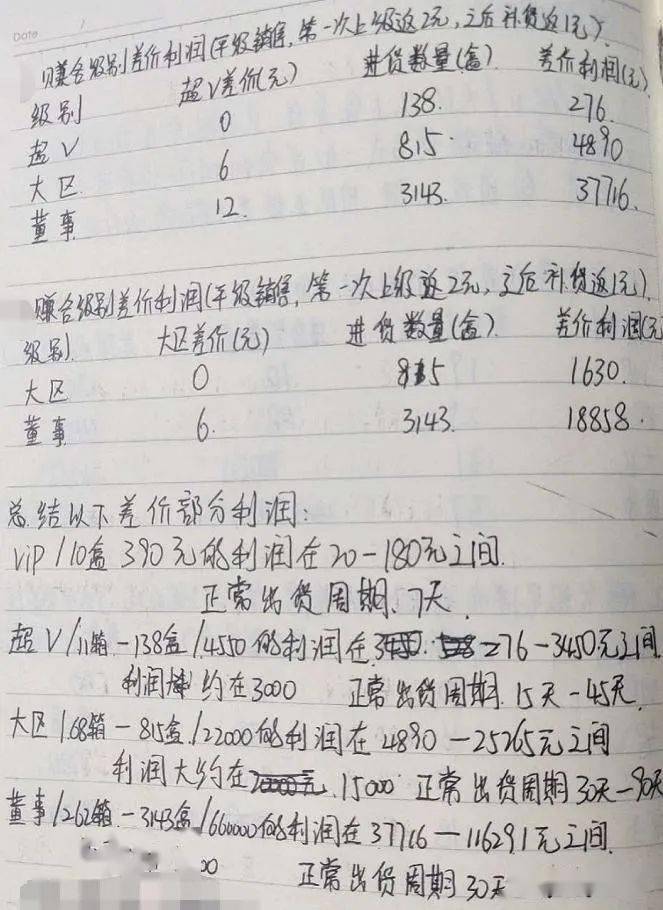 Date
赚合级别差价利润(平级销售,第一次上级返2元,之后补货返1元)
级别 超V差价(元) 进货数量(盒) 差价利润(元)
超V 0 138. 276.
大区 6 815 4890
董事 12. 3143. 37716.
赚合级别差价利润(平级销售,第一次上级返2元,之后补货返1元)
级别. 大区差价(元) 进货数量(盒) 差价利润(元
大区 0 815 1630.
董事 6. 3143. 18858.
总结以下差价部分利润:
vip/10盒 390元的利润在20-180元之间.
正常出货周期.7天.
超V/11箱-138盒/4550的利润在276-3450元之间
利润 约在3000 正常出货周期.15天-45天.
大区/68箱-815盒/22000的利润在4890-25265元之间
利润大约在15000 正常出货周期30天-90天
董事/262箱-3143盒/66000的利润在37716-116291元之间.
00 正常出货周期30天